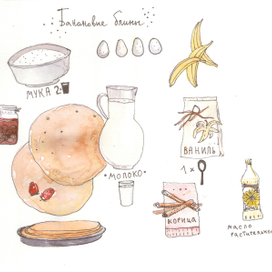 Банановые блины
МУКА 2
ВАНИЛЬ
1 ×
• МОЛОКО •
КОРИЦА
масло
растительное